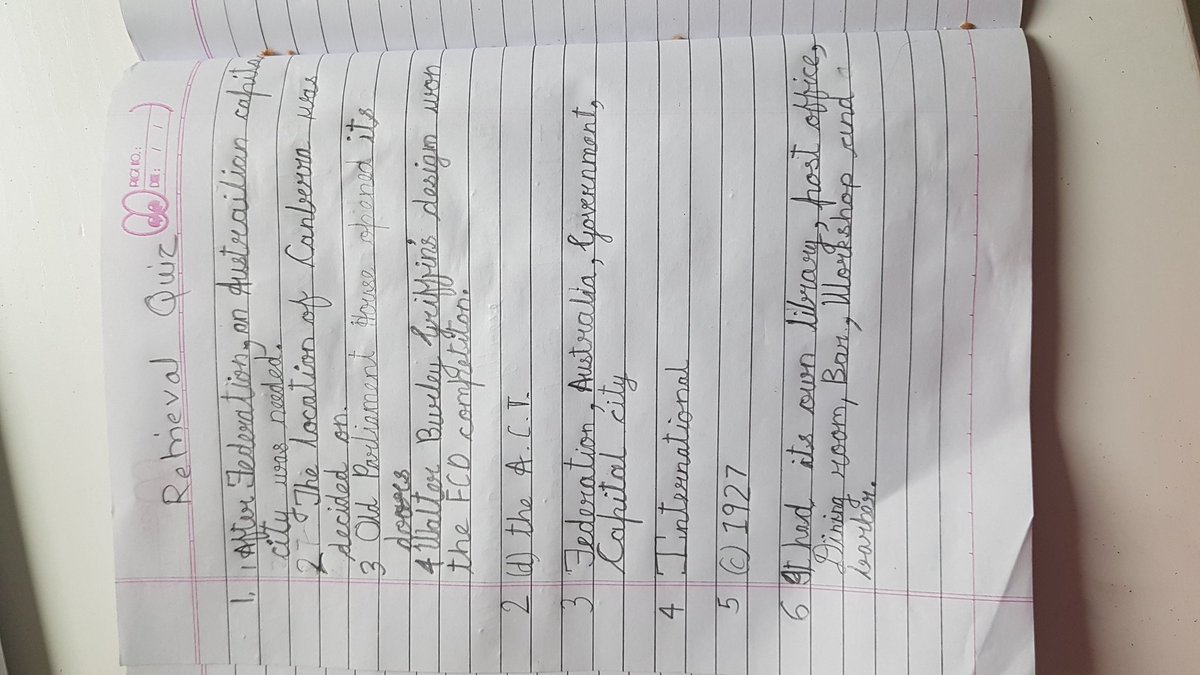 Retrieval Quiz
PAGE NO.:
DATE: / /
1. 1 After Federation, an Austrailian capital
city was needed.
2 - The location of Canberra was
decided on.
3 Old Parliament House opened its
doors
4 Walter Burley Griffin's design won
the FCD competiton.
2 (d) the A.C.T.
3 Federation, Australia, Government,
Capital city
4 International
5 (c) 1927
6 It had its own library, post office,
Dining room, Bar, Workshop and
barber.